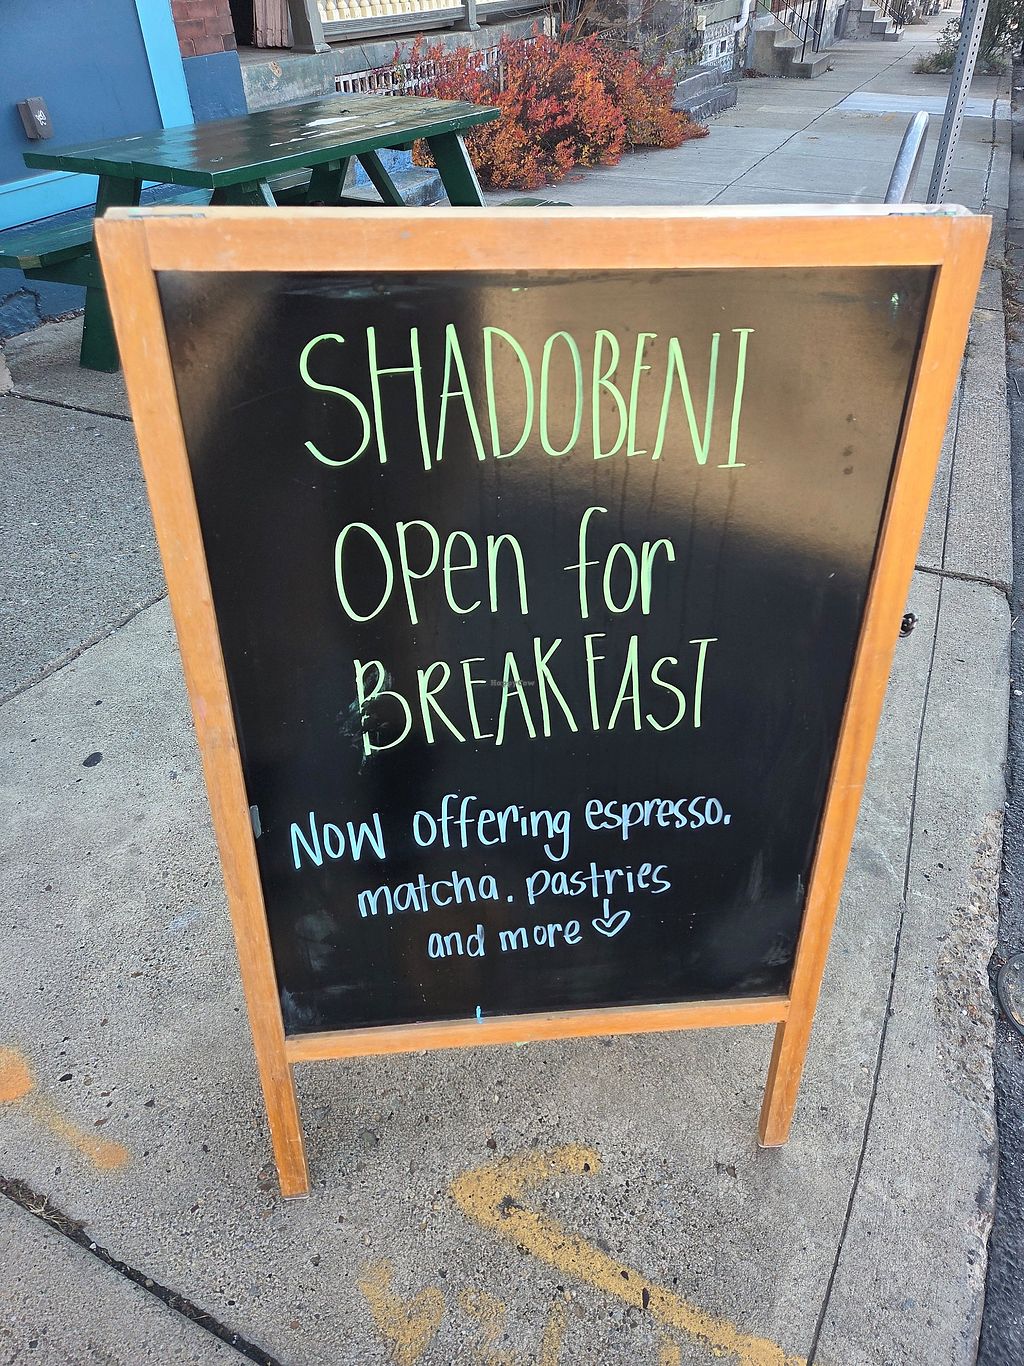 SHADOBENI
Open for
BREAKFAST
Now offering espresso.
matcha. pastries
and more
HappyCow